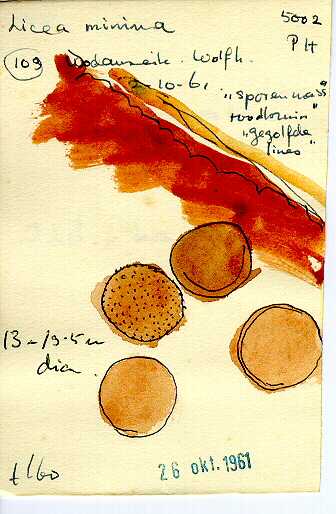 Licea minima
5002
PH
109 Wodanseik. Wolfh.
2-10-61
"sporenmassa
roodbruin"
"gegolfde
lines"
13-13.5 u
dia.
26 okt. 1961